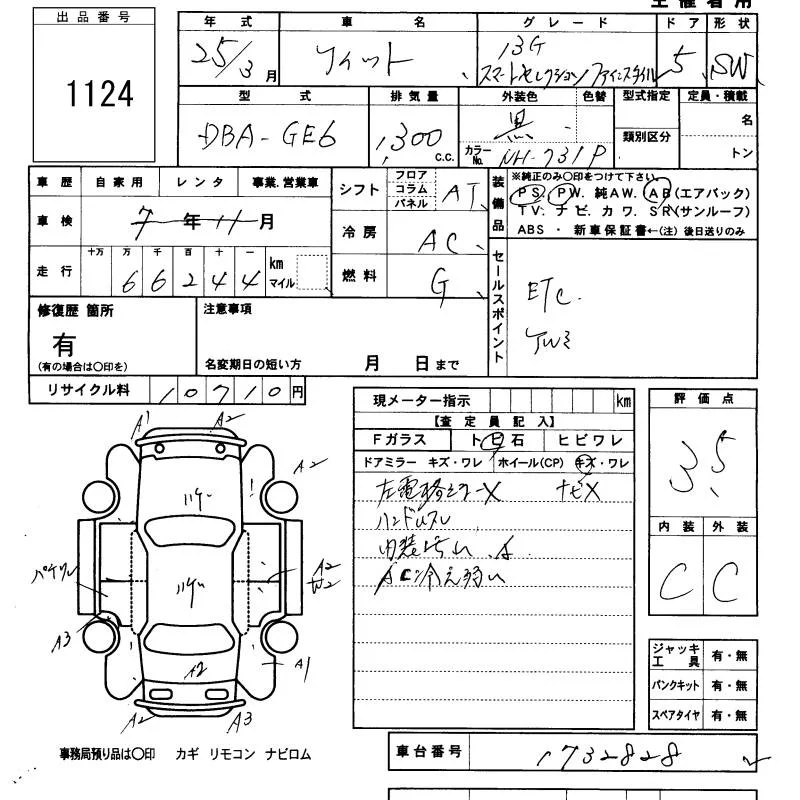 主催者用
出品番号
1124
年式
25/3月
車名
フィット
グレード
13G
スマートセレクション ファインスタイル
ドア
5
形状
SW
型式
DBA-GE6
排気量
1,300
C.C.
外装色
色替
黒
カラーNo.
NH-731P
型式指定
類別区分
定員・積載
名
トン
車歴
自家用
レンタ
事業.営業車
車検
7年11月
走行
十万 万 千 百 十 一
66244
km
マイル
シフト
フロア
コラム
パネル
AT
冷房
AC
燃料
G
装備品
※純正のみ○印をつけて下さい。
PS. PW. 純AW. AB(エアバック)
TV. ナビ. カワ. SR(サンルーフ)
ABS ・ 新車保証書←(注) 後日送りのみ
セールスポイント
ETC.
修復歴 箇所
有
(有の場合は○印を)
注意事項
名変期日の短い方
月 日まで
リサイクル料
10710円
現メーター指示
km
【査定員記入】
Fガラス
トビ石
ヒビワレ
ドアミラー キズ・ワレ
ホイール(CP) キズ・ワレ
左電格ミラーX
ナビX
ハンドルスレ
内装汚れ
AC冷え弱い
評価点
3.5
内装
外装
C
C
A1
A2
A2
A2
W2
A3
A1
A2
A2
A3
ジャッキ
工具
有・無
パンクキット
有・無
スペアタイヤ
有・無
事務局預り品は○印 カギ リモコン ナビロム
車台番号
1732828